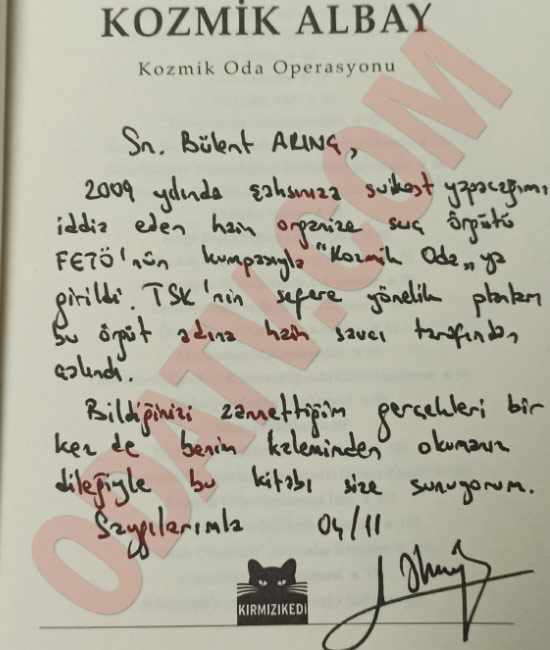 KOZMİK ALBAY
Kozmik Oda Operasyonu
Sn. Bülent ARINÇ,
2009 yılında şahsınıza suikast yapacağımı
iddia eden hain organize suç örgütü
FETÖ'nün kumpasıyla "Kozmik Oda"ya
girildi. TSK'nin sefere yönelik planları
bu örgüt adına hain savcı tarafından
çalındı.
Bildiğinizi zannettiğim gerçekleri bir
kez de benim kaleminden okumanız
dileğiyle bu kitabı size sunuyorum.
Saygılarımla 04/11
KIRMIZIKEDİ
ODATV.COM